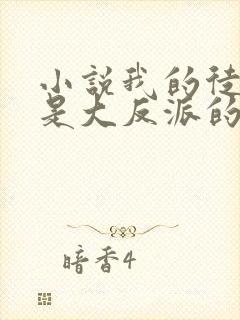 小說我的徒
是大反派的
暗香4